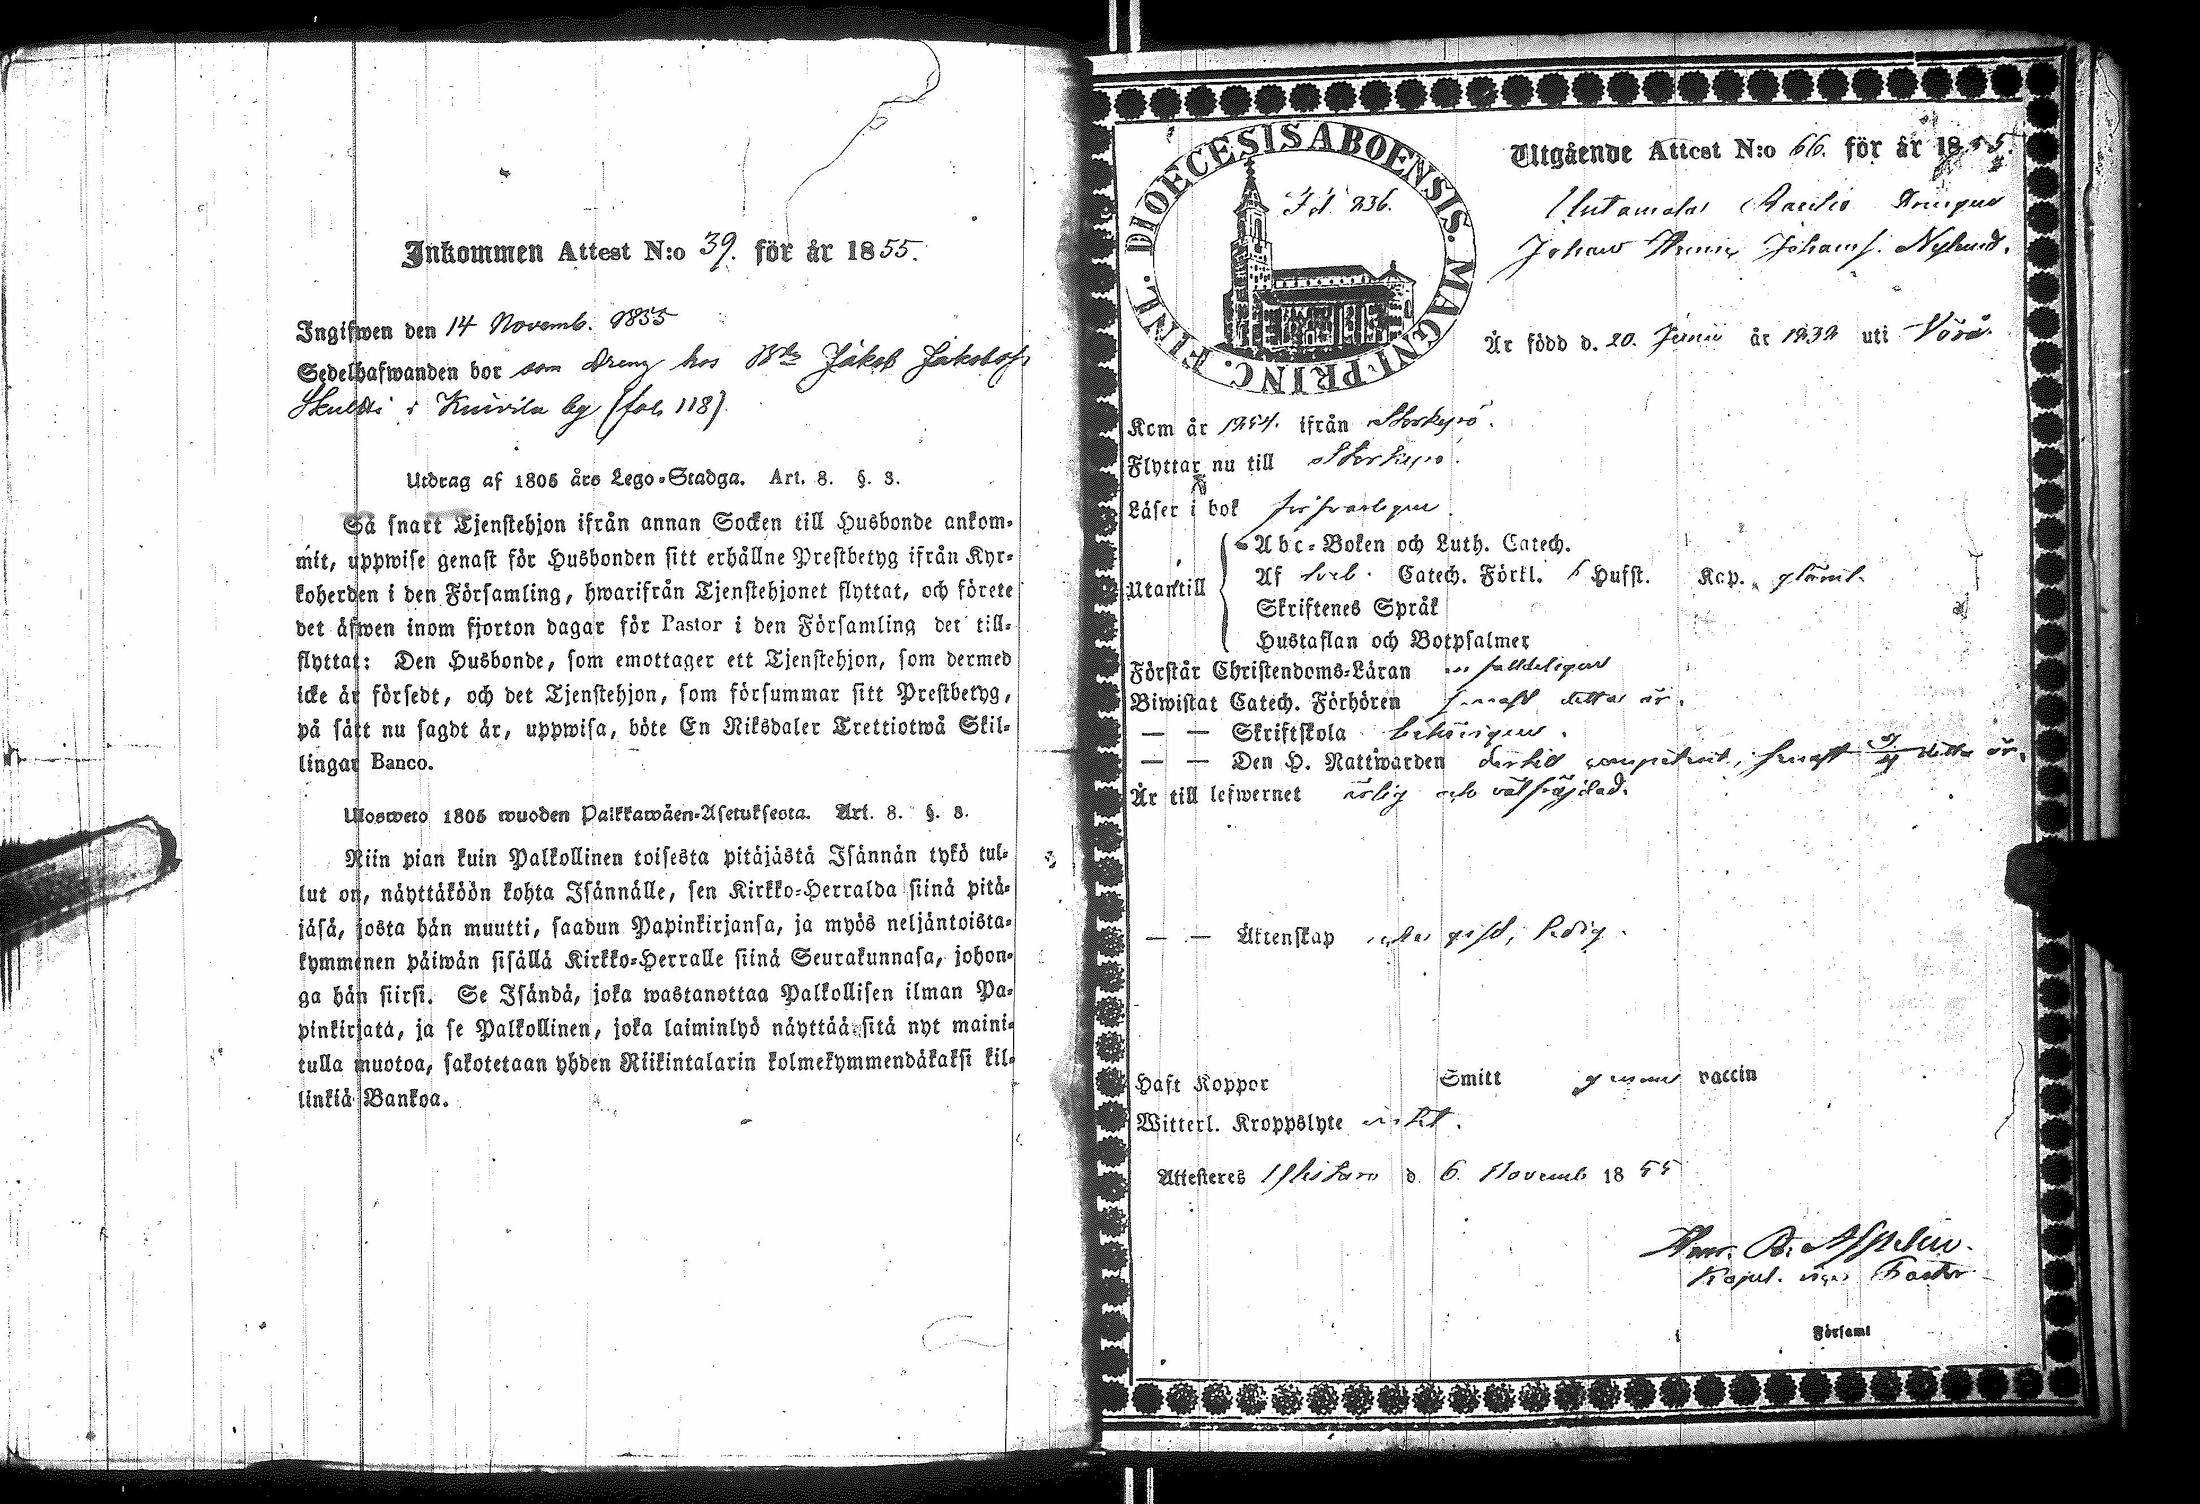 Inkommen Attest N:o 39. för år 1855.
Ingifwen den 14 Novemb. 1855
Sedelhafwanden bor som dreng hos Jakob Jakobss
Skultti i Knivila by (fol. 118)
Utdrag af 1805 års Lego-Stadga. Art. 8. §. 3.
Så snart Tjenstehjon ifrån annan Socken till Husbonde ankom-
mit, uppwise genast för Husbonden sitt erhållne Prestbetyg ifrån Kyr-
koherden i den Församling, hwarifrån Tjenstehjonet flyttat, och förete
det äfwen inom fjorton dagar för Pastor i den Församling der till-
flyttat: Den Husbonde, som emottager ett Tjenstehjon, som dermed
icke är försedt, och det Tjenstehjon, som försummar sitt Prestbetyg,
på sätt nu sagdt är, uppwisa, böte En Riksdaler Trettiotwå Skil-
lingar Banco.
Uosweto 1805 wuoden Palkkawäen-Asetuksesta. Art. 8. §. 3.
Niin pian kuin Palkollinen toisesta pitäjästä Isännän tykö tul-
lut on, näyttäköön kohta Isännälle, sen Kirkko-Herralda siinä pitä-
jäsä, josta hän muutti, saadun Papinkirjansa, ja myös neljäntoista-
kymmenen päiwän sisällä Kirkko-Herralle siinä Seurakunnasa, johon-
ga hän siirsi. Se Isändä, joka wastanottaa Palkollisen ilman Pa-
pinkirjatä, ja se Palkollinen, joka laiminlyö näyttää sitä nyt maini-
tulla muotoa, sakotetaan yhden Riikintalarin kolmekymmendäkaksi kil-
linkiä Bankoa.
DIOECESIS ABOENSIS. MAGNI PRINC. FINL.
Id. 236.
Utgående Attest N:o 66. för år 1855.
Rautio Drengen
Johan Johanss. Nylund.
Är född d. 20 Junii år 1832 uti Vörå
Kom år 1854. ifrån Storkyro.
Flyttar nu till Storkyro.
Läser i bok försvarligen.
Utantill
Abc-Boken och Luth. Catech.
Af Catech. Förkl. Hufst. Kap.
Skriftenes Språk
Hustaflan och Botpsalmer
Förstår Christendoms-Läran
Biwistat Catech. Förhören senast detta år.
— — Skriftskola behörigen.
— — Den H. Nattwarden dertill competent, senast detta år.
Är till lefwernet ärlig och välfräjdad.
— — Äktenskap gift, ledig.
Haft Koppor Smitt genom vaccin
Witterl. Kroppslyte intet.
Attesteres Ylistaro d. 6. Novemb 1855
Asp
Kapel. Pastor
Församl